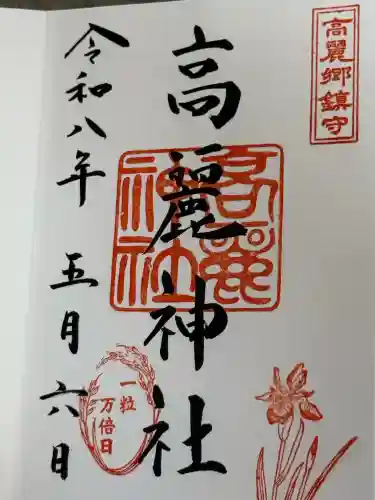 高麗郷鎮守
高麗神社
高麗神社
令和八年 五月六日
一粒
万倍日